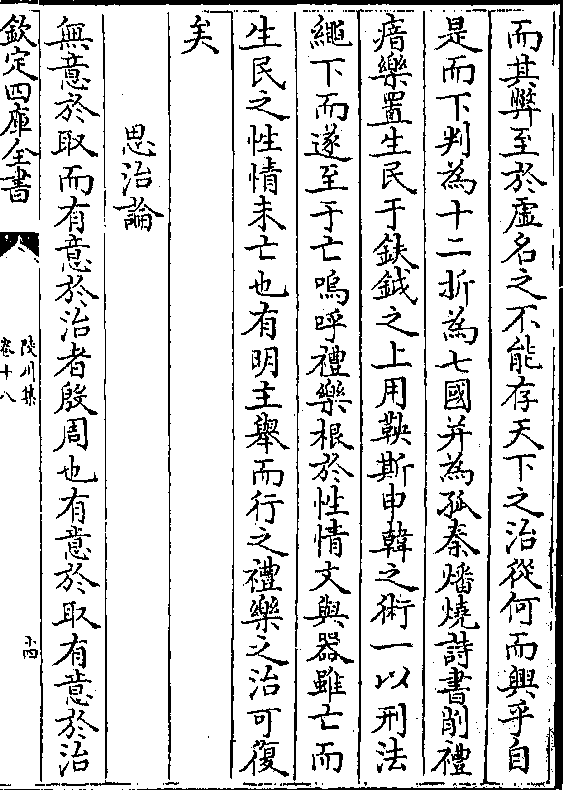 而其弊至於虛名之不能存天下之治從何而興乎自
是而下判為十二折為七國并為孤秦燔燒詩書削禮
瘖樂置生民于鈇鉞之上用鞅斯申韓之術一以刑法
繩下而遂至于亡嗚呼禮樂根於性情文與器雖亡而
生民之性情未亡也有明主舉而行之禮樂之治可復
矣
思治論
無意於取而有意於治者殷周也有意於取有意於治
欽定四庫全書
陵川集
卷十八
十四